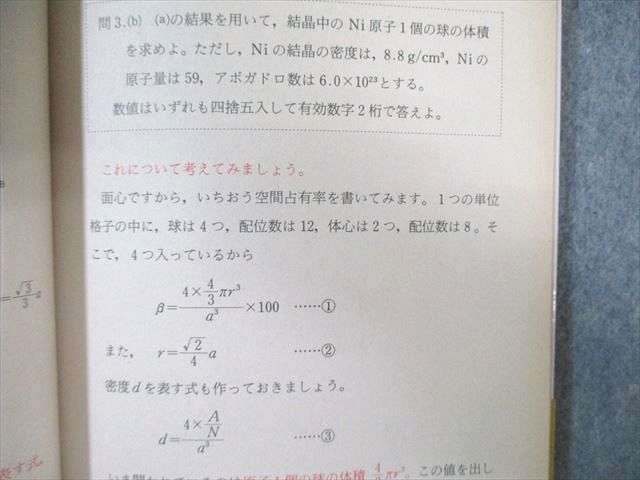 問3.(b) (a)の結果を用いて，結晶中の Ni 原子1個の球の体積
を求めよ。ただし，Ni の結晶の密度は，8.8g/cm³，Ni の
原子量は 59，アボガドロ数は 6.0×10²³とする。
数値はいずれも四捨五入して有効数字2桁で答えよ。
これについて考えてみましょう。
面心ですから，いちおう空間占有率を書いてみます。1つの単位
格子の中に，球は4つ，配位数は12，体心は2つ，配位数は8。そ
こで，4つ入っているから
β=(4×4/3πr³)/a³×100 ……①
また， r=√2/4 a ……②
密度dを表す式も作っておきましょう。
d=(4×A/N)/a³ ……③
原子1個の球の体積 4/3πr³。この値を出し
=√3/3
表す式。